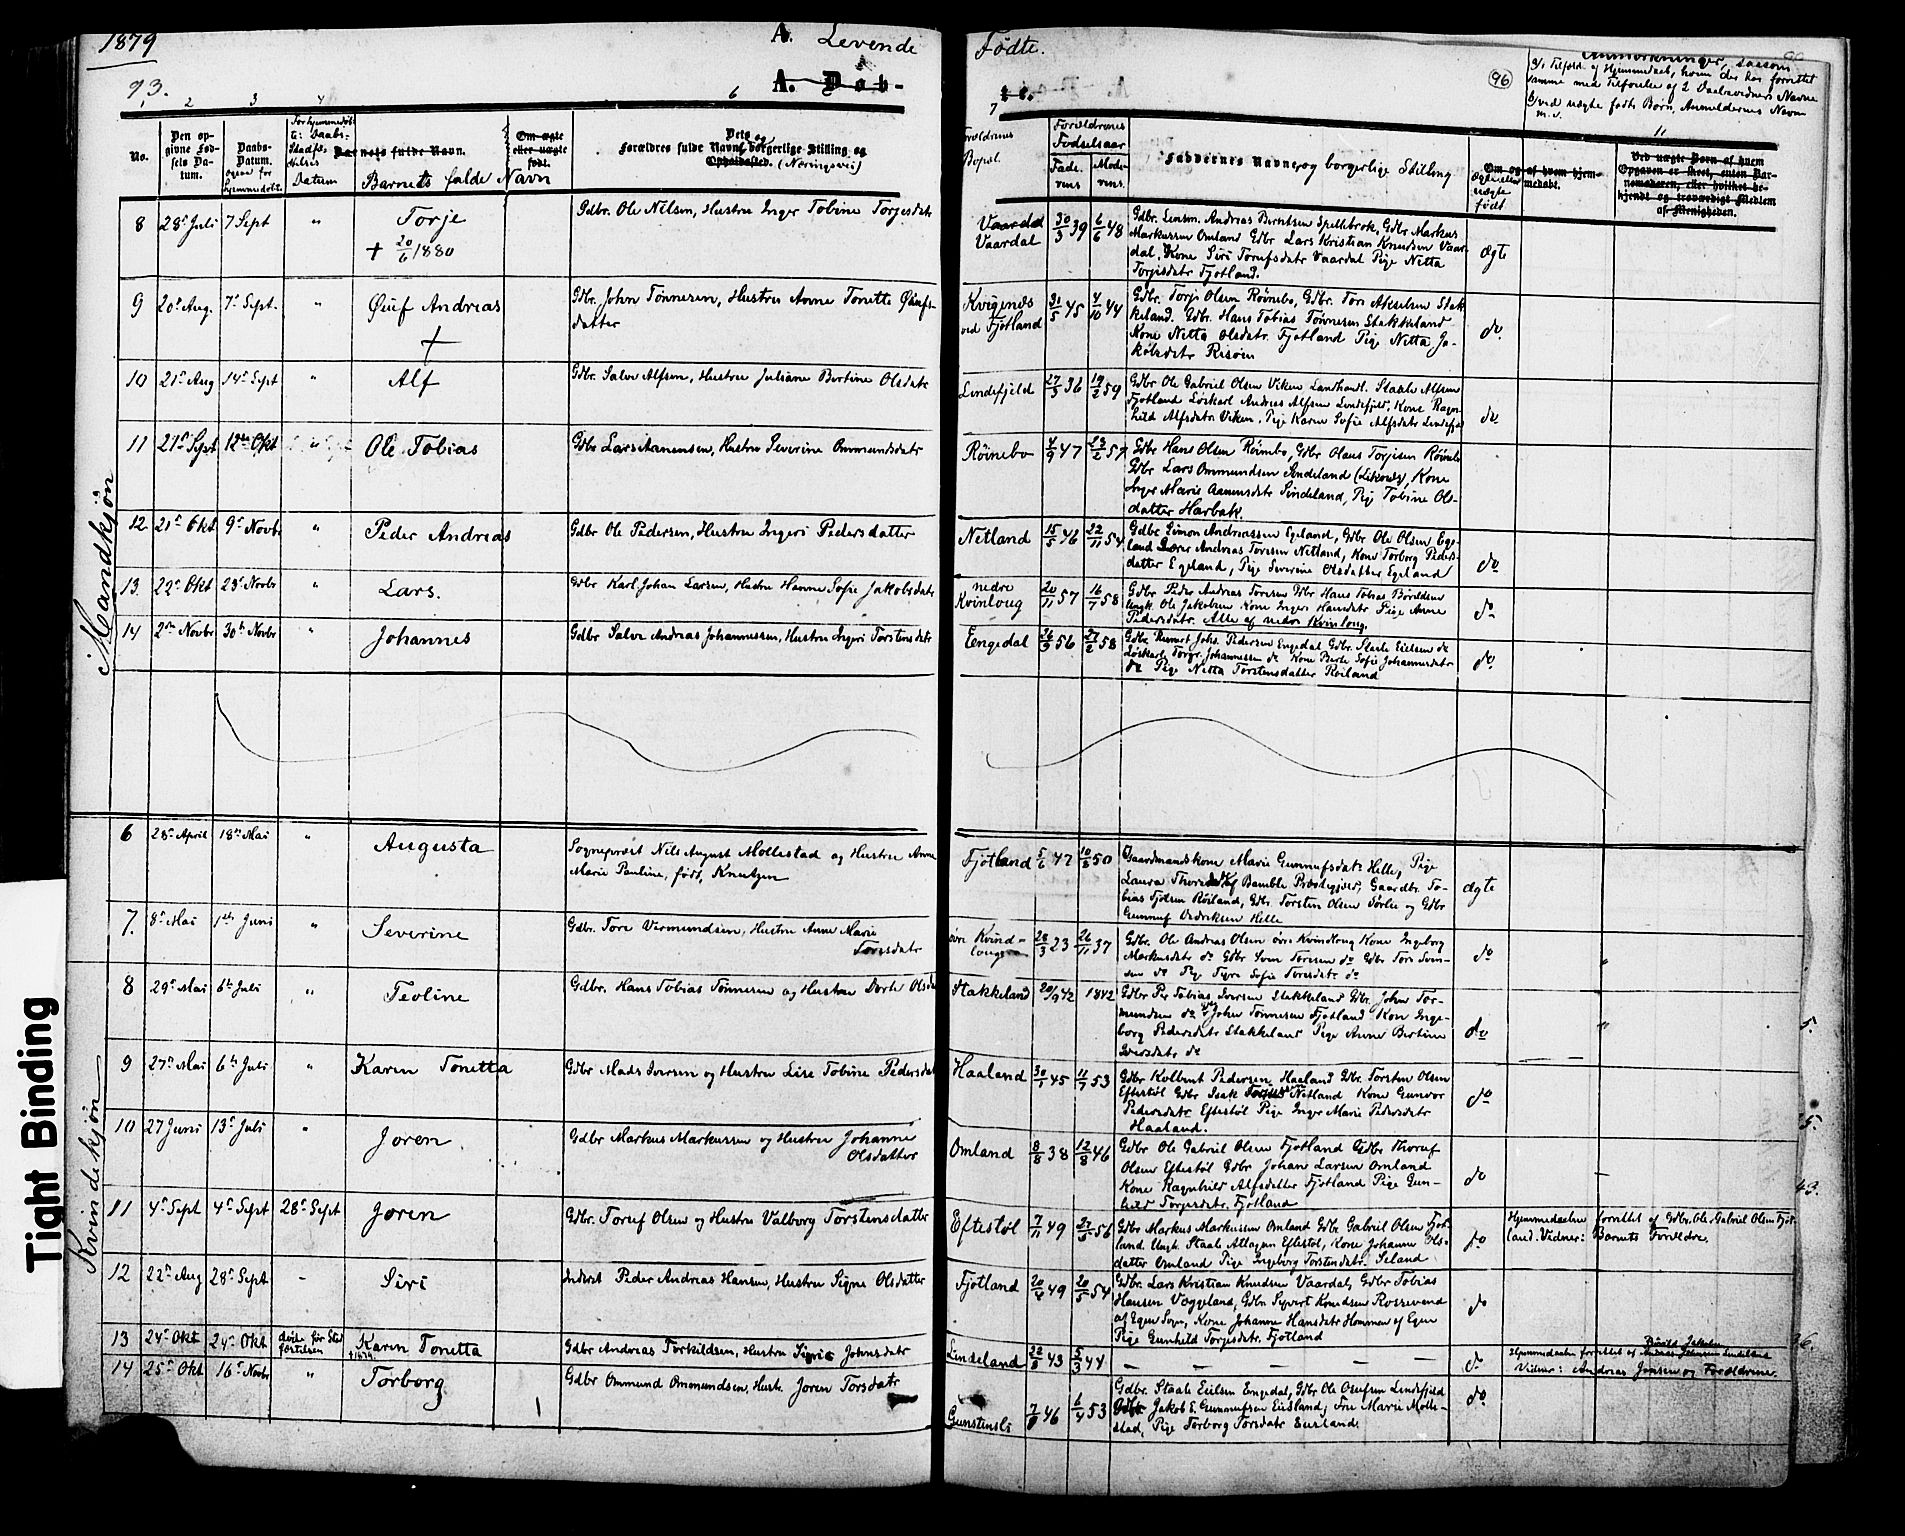 1879
A. Levende Fødte.
93.
A. Døb-
96
No.
Den opgivne Fødsels Datum.
Daabs-Datum.
Barnets fulde Navn.
Barnets fulde Navn
Om ægte eller uægte født.
Forældres fulde Navne og borgerlige Stilling og Opholdssted. (Næringsvei)
Forældrenes Bopæl.
Forældrenes Fødselsaar
Faderens
Moderens
Faddernes Navne og borgerlige Stilling
Om og af hvem hjemmedøbt.
Ægte eller uægte født
Ved uægte Børn af hvem Opgaven er skeet, enten Barnemoderen, eller hvilket bekjendt og troværdigt Medlem af Menigheden.
Mandkjøn
8 28de Juli 7 Sept " Torje Gdbr. Ole Nilsen, Hustru Inger Tobine Torjesdatr Vaardal 30/3 39 6/6 48 Gdbr. Lensm. Andreas Berntsen Spellebrok, Gdbr Markus
+ 20/6 1880 Vaardal Markussen Omland Gdbr Lars Kristian Knudsen Vaar-
dal, Kone Siri Torufsdatr Vaardal Pige Netta ægte
Torjesdatr Fjotland.
9 20de Aug. 7de Sept. " Øuf Andreas Gdbr. John Tønnesen, Hustru Anne Tonette Øufs- Kvigenes 31/5 45 4/10 44 Gdbr. Torje Olsen Rønebo, Gdbr. Tore Akselsen Stak-
+ datter ved Fjotland keland. Gdbr. Hans Tobias Tønnesen Stakkeland do.
Kone Netta Olsdatr. Fjotland Pige Netta Ja-
kobsdatr Risøen
10 21de Aug 14de Sept " Alf Gdbr. Salve Alfsen, Hustru Juliane Bertine Olsdatr Lindefjeld 27/3 36 19/2 59 Gdbr Ole Gabriel Olsen Viken Landhandl. Staale Alfsen
Fjotland Løskarl Andreas Alfsen Lindefjeld, Kone Ragn-
hild Alfsdatr Viken, Pige Karen Sofie Alfsdatr Lindefjeld do
11 21de Sept 12te Okt " Ole Tobias Gdbr Lars Aanensen, Hustru Severine Ommundsdatr Røinebo 4/9 47 23/2 57 Gdbr Hans Olsen Røinebo, Gdbr Olaus Torjesen Røinebo
Gdbr Lars Ommundsen Sindeland, Kone
Inger Marie Aanensdatr Sindeland, Pig Tobine Ols-
datter Harbak.
12 21de Okt 9de Novbr " Peder Andreas Gdbr Ole Pedersen, Hustru Ingeri Pedersdatter Netland 15/5 46 22/11 54 Gdbr Simon Andreassen Egeland, Gdbr Ole Olsen Ege-
land Lærer Andreas Toresen Netland, Kone Torborg Peders-
datter Egeland, Pige Severine Olsdatter Egeland do
13 22de Okt 23de Novbr " Lars. Gdbr Karl Johan Larsen, Hustru Hanne Sofie Jakobsdatr nedre Kvinloug 20/11 57 16/7 58 Gdbr Peder Andreas Toresen Gdbr Hans Tobias Børoldsen
Ungk. Ole Jakobsen Kone Inger Hansdatr Pige Anne do
Pedersdatr. Alle af nedre Kvinloug.
14 2den Novbr 30te Novbr " Johannes Gdbr Salve Andreas Johannessen, Hustru Ingeri Torstensdatr Eengedal 26/9 56 27/2 58 Gdbr Rennert Johs. Pedersen Engedal Gdbr. Staale Eielsen do
Løskarl Torgr. Johannessen do Kone Berte Sofie Johannesdatr do
do Pige Netta Torstensdatter Røiland
Kvindekjøn
6 28de April 18de Mai " Augusta Sogneprest Nils August Mollestad og Hustru Anne Fjotland 5/6 47 10/8 50 Gaardmandskone Marie Gunnufsdatr Helle, Pige
Marie Pauline, født, Knutzen Laura Thorsdatr af Bamble Prestegjeld, Gaardbr. To- ægte
bias Fjelsen Røiland, Gdbr. Torsten Olsen Sørlie og Gdbr
Gunnuf Vedriksen Helle
7. 8de Mai 1ste Juni " Severine Gdbr. Tore Vermundsen, Hustru Anne Marie øvre Kvind- 28/3 23 26/11 37 Gdbr. Ole Andreas Olsen øvre Kvindloug Kone Ingeborg
Torsdatr loug Markusdatr do Gdbr Sven Toresen do Gdbr Tore Sven- do "
sen do Pige Tyre Sofie Toresdatr do
8 29de Mai 6te Juli " Teoline Gdbr. Hans Tobias Tønnesen og Hustru Dorte Olsda Stakkeland 20/9 42 1842 Gdbr Per Tobias Iversen Stakkeland Gdbr. John Tor-
mundsen do og John Tønnesen Fjotland Kone Inge-
borg Pedersdatr Stakkeland Pige Anne Bertine do "
Iversdatr do
9 27de Mai 6te Juli " Karen Tonetta Gdbr Mads Iversen og Hustru Lise Tobine Pedersdat Haaland 30/1 45 11/7 53 Gdbr Kolbent Pedersen Haaland Gdbr. Torsten Olsen
Eftestøl Gdbr Isak Netland Kone Gunvor
Pedersdatr. Eftestøl Pige Inger Marie Pedersdatr do
Haaland.
10 27 Juni 13de Juli " Joren Gdbr Markus Markussen og Hustru Johanne Omland 8/8 38 12/8 46 Gdbr Ole Gabriel Olsen Fjotland Gdbr Thoruf
Olsdatter Olsen Eftestøl Gdbr Johan Larsen Omland do
Kone Ragnhild Alfsdatter Fjotland Pige Gun-
hild Torjesdatr. Fjotland
11 4de Sept 4de Sept 28de Sept Joren Gdbr. Toruf Olsen og Hustru Valborg Torstensdatter Eftestøl 7/11 49 27/5 56 Gdbr Markus Markussen Omland Gdbr Gabriel Olsen Fjot- Hjemmedøben forrettet af Gdbr. Ole Gabriel Olsen Fjot-
land. Ungk. Staale Atlagsen Eftestøl, Kone Johanne Ols- do land. Vidner: Barnets Forældre.
datter Omland Pige Ingeborg Torstensdatr. Seland
12 22de Aug 28de Sept - Siri Inderst Peder Andreas Hansen, Hustru Signe Olsdatter Fjotland 20/4 49 20/5 54 Gdbr. Lars Kristian Knudsen Vaardal, Gdbr Tobias
Hansen Væggeland, Gdbr Syvert Knudsen Rossevand do
af Egen Sogn, Kone Johanne Hansdatr Hommen af Egen
Pige Gunhild Torjesdatr. Fjotland
13 24de Okt 24de Okt døde før Stadfæstelsen Karen Tonetta Gdbr Andreas Torkildsen, Hustru Sigrie Johnsdatr Lindeland 22/8 43 5/3 44 — — — — do Hjemmedøben forrettet af Lindeland
Vidner: Andreas Jensen og Forældrene.
14 25de Okt 16de Novbr " Torborg Gdbr Ommund Ommundsen, Hust. Joren Torsdatr Gunstensli 7/8 46 6/4 53 Gdbr. Staale Eielsen Engedal, Gdbr Ole Osufsen Lindefjeld do
Jakob E. Gunnufsen Eisland, Fru Marie Molle-
stad, Pige Torborg Torsdatr Eisland.
Tight Binding